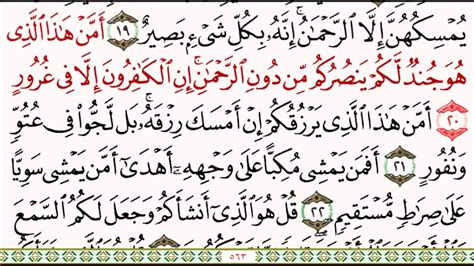 يُمْسِكُهُنَّ إِلَّا ٱلرَّحْمَـٰنُ ۚ إِنَّهُۥ بِكُلِّ شَىْءٍۭ بَصِيرٌ ١٩ أَمَّنْ هَـٰذَا ٱلَّذِى
هُوَ جُندٌ لَّكُمْ يَنصُرُكُم مِّن دُونِ ٱلرَّحْمَـٰنِ ۚ إِنِ ٱلْكَـٰفِرُونَ إِلَّا فِى غُرُورٍ
٢٠ أَمَّنْ هَـٰذَا ٱلَّذِى يَرْزُقُكُمْ إِنْ أَمْسَكَ رِزْقَهُۥ ۚ بَل لَّجُّوا۟ فِى عُتُوٍّ
وَنُفُورٍ ٢١ أَفَمَن يَمْشِى مُكِبًّا عَلَىٰ وَجْهِهِۦٓ أَهْدَىٰٓ أَمَّن يَمْشِى سَوِيًّا
عَلَىٰ صِرَٰطٍ مُّسْتَقِيمٍ ٢٢ قُلْ هُوَ ٱلَّذِىٓ أَنشَأَكُمْ وَجَعَلَ لَكُمُ ٱلسَّمْعَ
٥٦٣